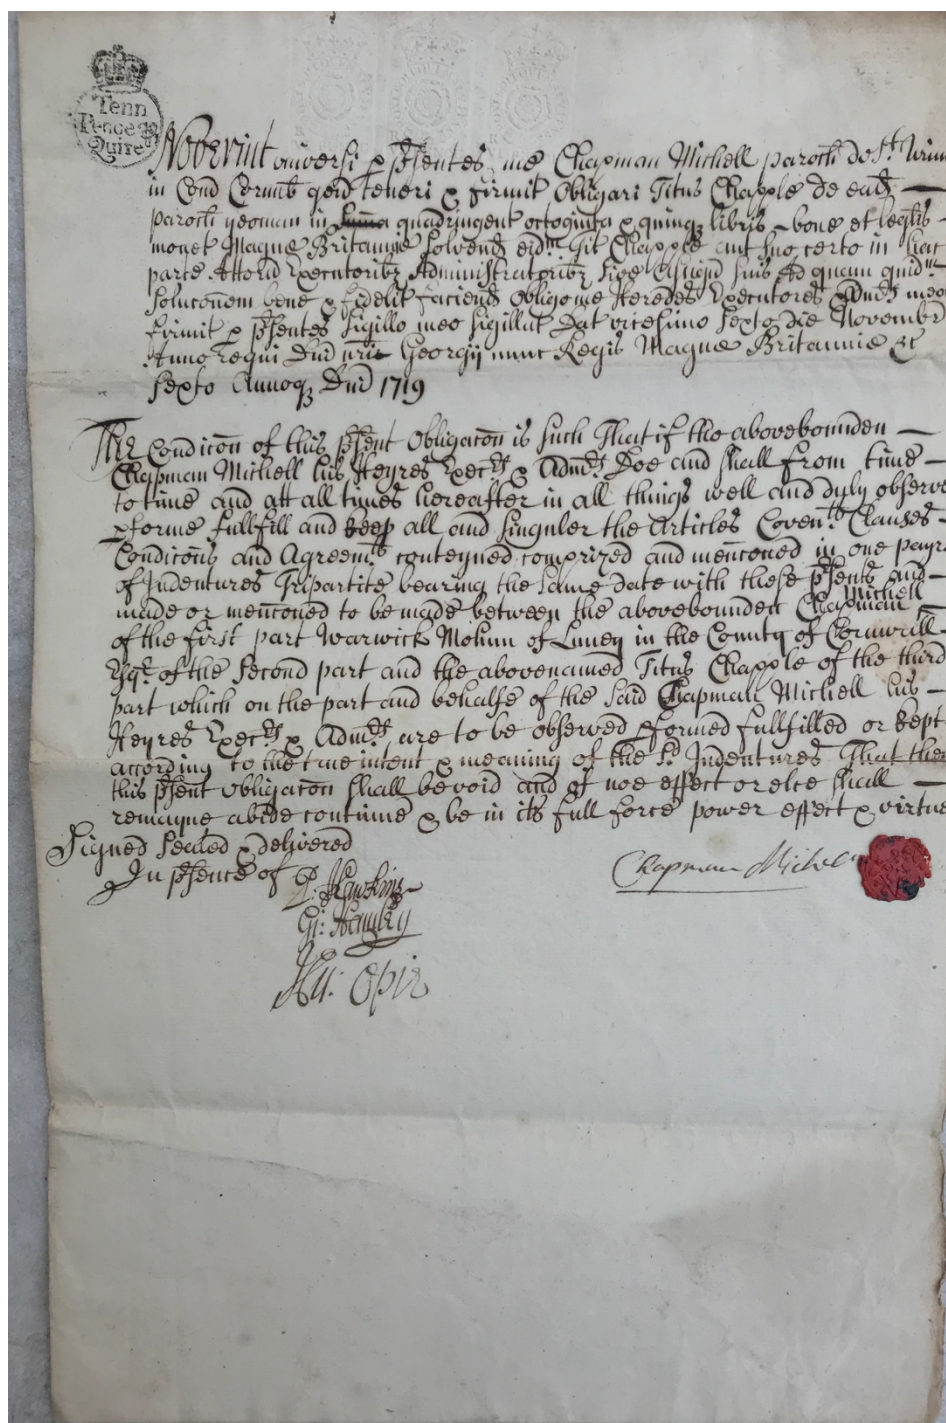 Tenn
Pence p
Quire
Noverint universi p psentes me Chapman Michell paroch de St. Winn
in Com Cornub gen teneri & firmit Obligari Titus Chapple de ead
paroch yeoman in quadringent octoginta & quinq libris bone et legalis
monet Magne Britannie solvend eidm Tit Chapple aut suo certo in hac
parte Attorn Executoribz Administratoribz sive Assign suis Ad quam quidm
soluconem bene & fidelit faciend Obligo me Heredes Executores & Admrs meos
firmit p psentes Sigillo meo Sigillat Dat vicesimo sexto die Novembr
Anno regni Dni nri Georgij nunc Regis Magne Britannie &c
sexto Annoq Dni 1719
The Condicon of this psent Obligacon is such That if the abovebounden
Chapman Michell his Heyres Execrs & Admrs Doe and shall from time
to time and att all times hereafter in all things well and duly observe
pforme fullfill and keep all and singuler the Articles Covents Clauses
Condicons and Agreemts conteyned comprized and menconed in one payre
of Indentures Tripartite bearing the same date with these psents and
made or menconed to be made between the abovebounden Chapman Michell
of the first part Warwick Mohun of Luney in the County of Cornwall
Esqr. of the Second part and the abovenamed Titus Chapple of the third
part which on the part and behalfe of the said Chapman Michell his
Heyres Execrs & Admrs are to be observed pformed fullfilled or kept
according to the true intent & meaning of the sd. Indentures That then
this psent obligacon shall be void and of noe effect or else shall
remayne abide continue & be in its full force power effect & virtue
Signed Sealed & delivered
In psence of
Chapman Michell
P: Hawkins
G: Hamley
Opie